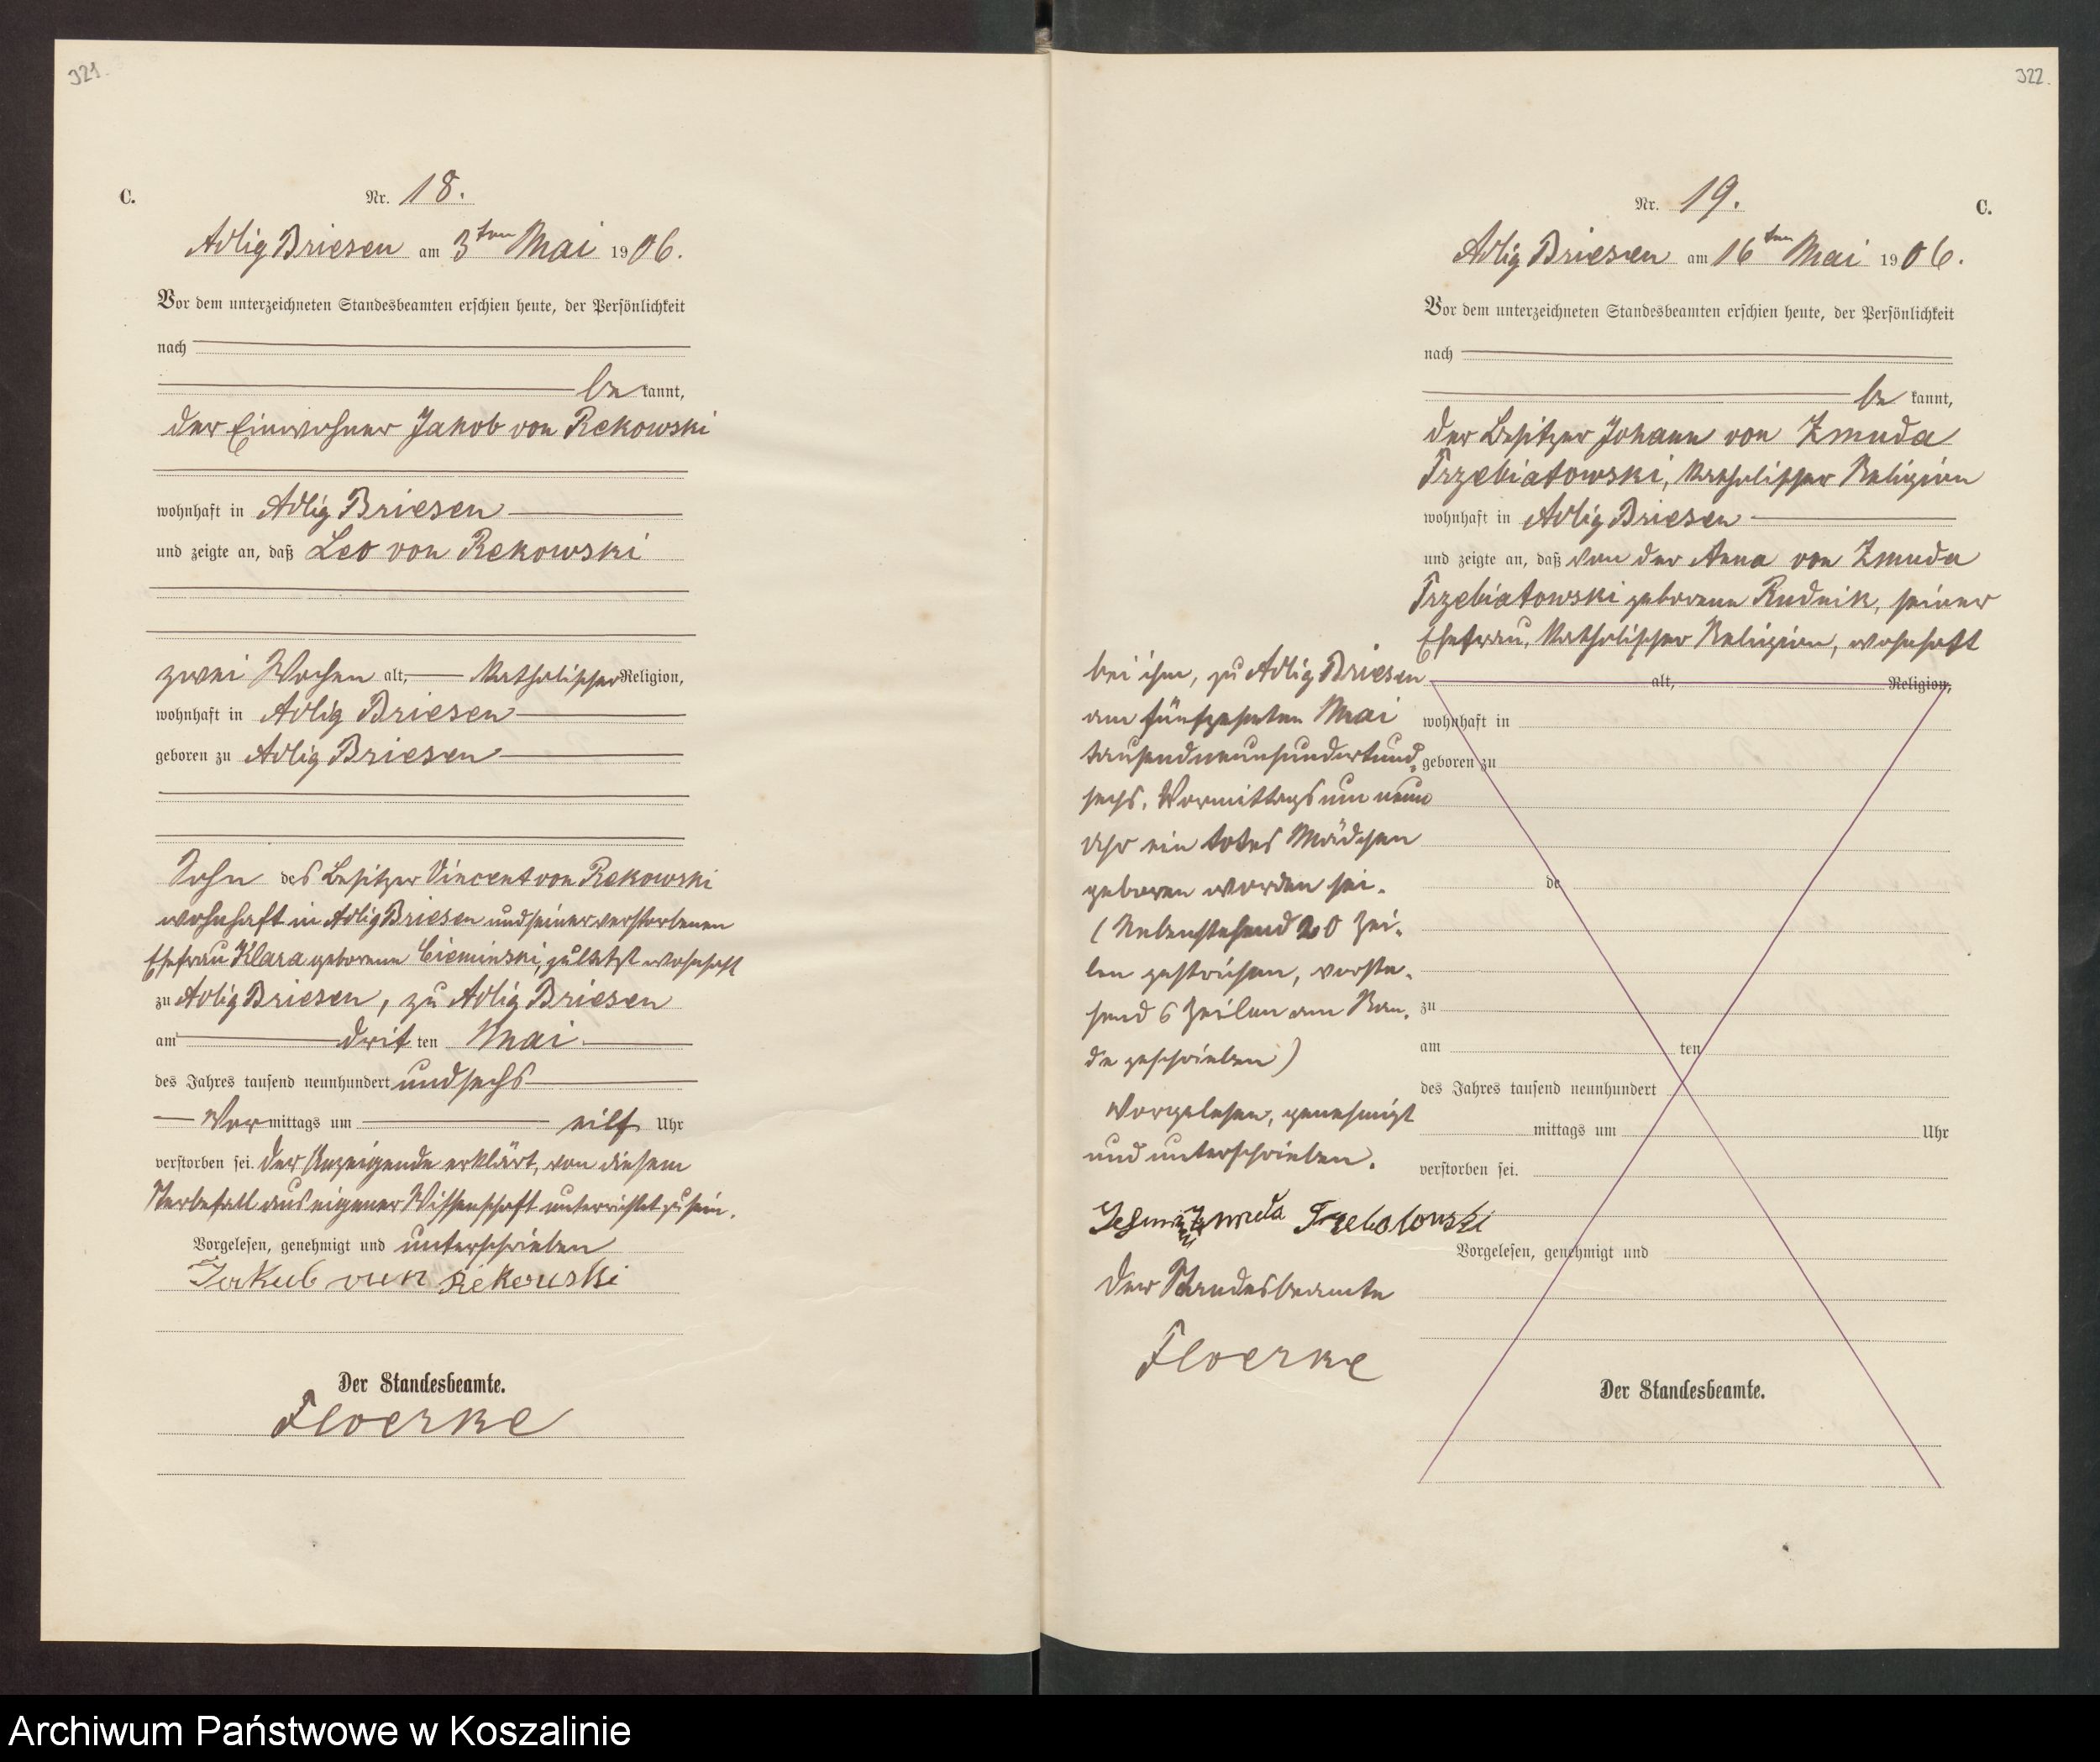 321.
C.
Nr. 18.
Adlig Briesen am 3ten Mai 1906.
Vor dem unterzeichneten Standesbeamten erschien heute, der Persönlichkeit
nach
be kannt,
der Einwohner Jakob von Rekowski
wohnhaft in Adlig Briesen
und zeigte an, daß Leo von Rekowski
zwei Wochen alt, katholischer Religion,
wohnhaft in Adlig Briesen
geboren zu Adlig Briesen
Sohn des Besitzer Vincent von Rekowski
wohnhaft in Adlig Briesen und seiner verstorbenen
Ehefrau Klara geborene Cieminski, zuletzt wohnhaft
zu Adlig Briesen, zu Adlig Briesen
am dritten Mai
des Jahres tausend neunhundert undsechs
Vormittags um eilf Uhr
verstorben sei. Der Anzeigende erklärt, von diesem
Sterbefall aus eigener Wissenschaft unterrichtet zu sein.
Vorgelesen, genehmigt und unterschrieben
Jakub von Rekowski
Der Standesbeamte.
Floerke
322.
Nr. 19.
C.
Adlig Briesen am 16ten Mai 1906.
Vor dem unterzeichneten Standesbeamten erschien heute, der Persönlichkeit
nach
be kannt,
der Besitzer Johann von Zmuda
Trzebiatowski, katholischer Religion
wohnhaft in Adlig Briesen
und zeigte an, daß von der Anna von Zmuda
Trzebiatowski geborene Rudnik, seiner
Ehefrau, katholischer Religion, wohnhaft
bei ihm, zu Adlig Briesen
am fünfzehnten Mai
tausendneunhundertund-
sechs, Vormittags um neun
Uhr ein totes Mädchen
geboren worden sei.
(Nebenstehend 20 Zei-
len gestrichen, vorste-
hend 6 Zeilen am Ran-
de geschrieben)
Vorgelesen, genehmigt
und unterschrieben.
Zmuda
Der Standesbeamte
Floerke
alt, Religion,
wohnhaft in
geboren zu
de
zu
am ten
des Jahres tausend neunhundert
mittags um Uhr
verstorben sei.
Vorgelesen, genehmigt und
Der Standesbeamte.
Archiwum Państwowe w Koszalinie